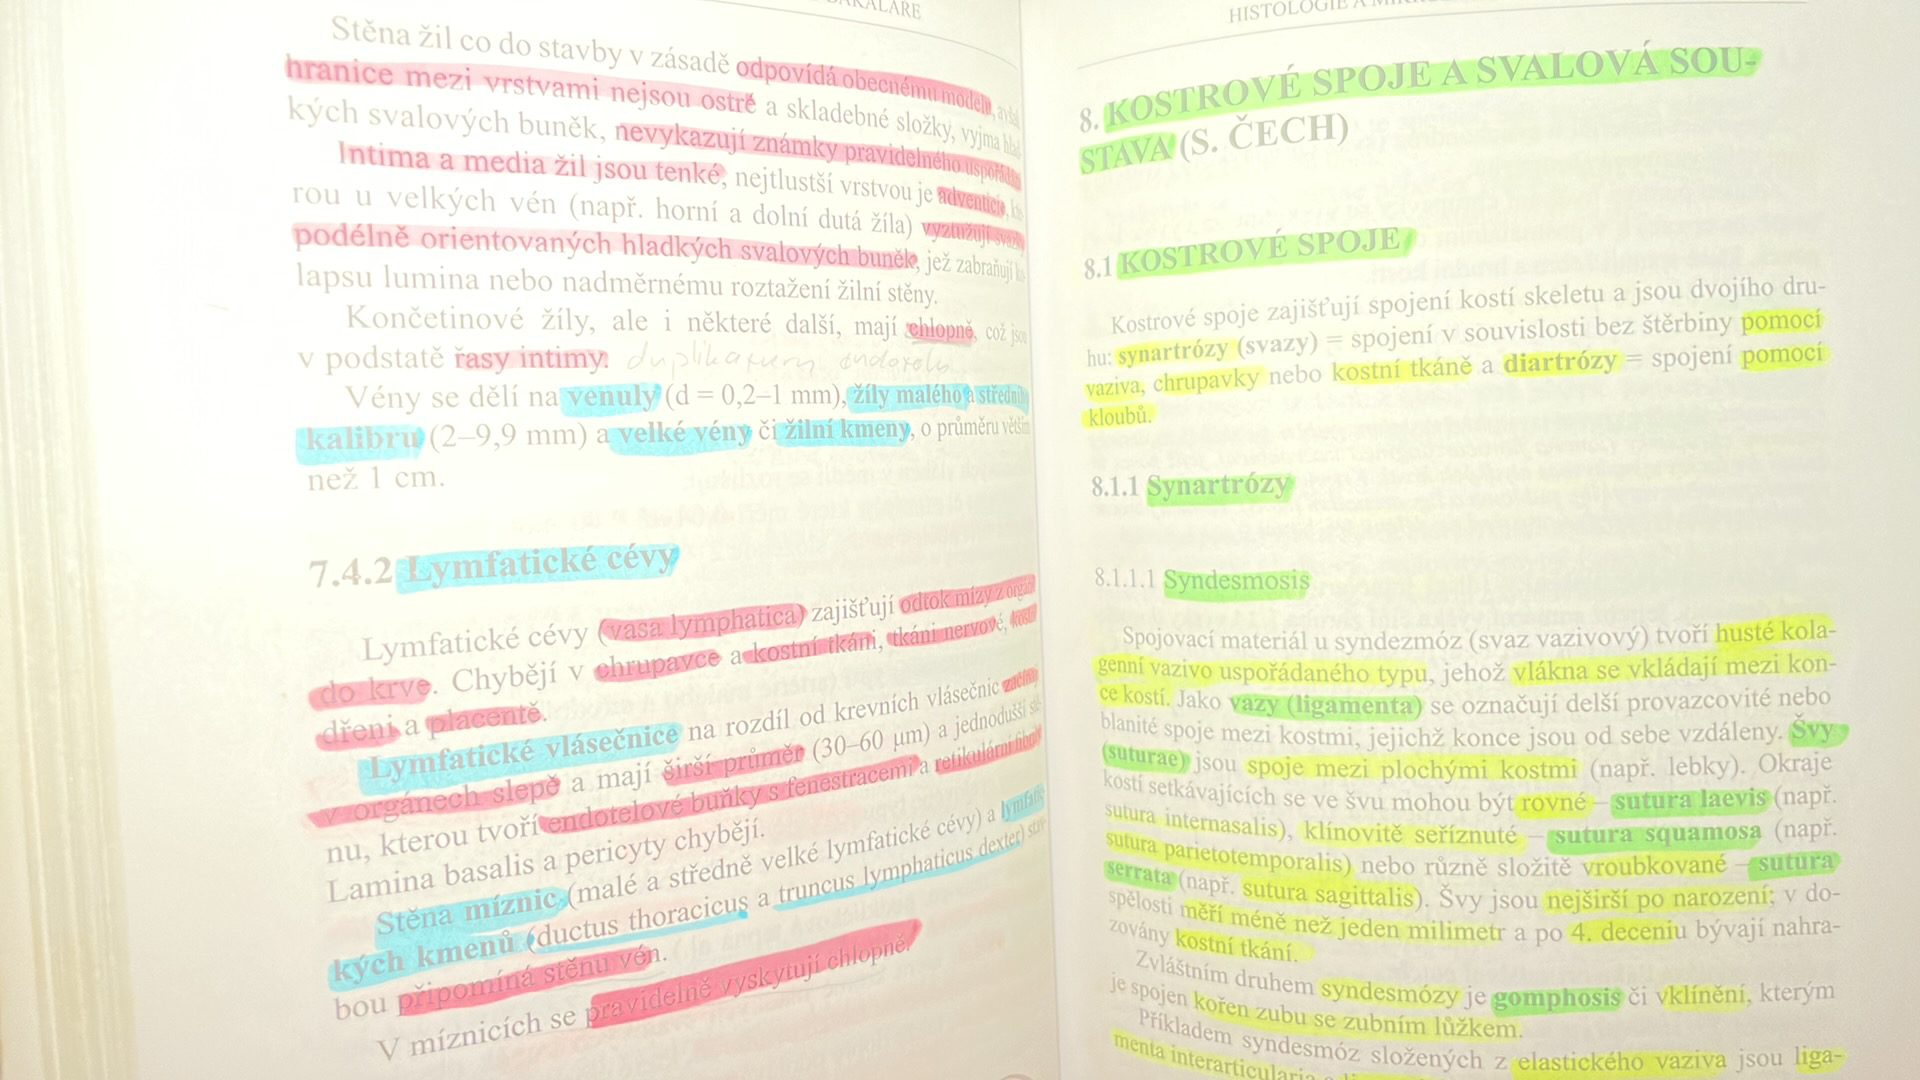 BAKALÁŘE
Stěna žil co do stavby v zásadě odpovídá obecnému modelu, avšak
hranice mezi vrstvami nejsou ostré a skladebné složky, vyjma hlad-
kých svalových buněk, nevykazují známky pravidelného uspořádání.
Intima a media žil jsou tenké, nejtlustší vrstvou je adventicie, kte-
rou u velkých vén (např. horní a dolní dutá žíla) vyztužují svazky
podélně orientovaných hladkých svalových buněk, jež zabraňují ko-
lapsu lumina nebo nadměrnému roztažení žilní stěny.
Končetinové žíly, ale i některé další, mají chlopně, což jsou
v podstatě řasy intimy. duplikatury endotelu
Vény se dělí na venuly (d = 0,2–1 mm), žíly malého a středního
kalibru (2–9,9 mm) a velké vény či žilní kmeny, o průměru větším
než 1 cm.
7.4.2 Lymfatické cévy
Lymfatické cévy (vasa lymphatica) zajišťují odtok mízy z orgánů
do krve. Chybějí v chrupavce a kostní tkáni, tkáni nervové, kostní
dřeni a placentě.
Lymfatické vlásečnice na rozdíl od krevních vlásečnic začínají
v orgánech slepě a mají širší průměr (30–60 μm) a jednodušší stě-
nu, kterou tvoří endotelové buňky s fenestracemi a retikulární fibrily.
Lamina basalis a pericyty chybějí.
Stěna míznic (malé a středně velké lymfatické cévy) a lymfatic-
kých kmenů (ductus thoracicus a truncus lymphaticus dexter) stav-
bou připomíná stěnu vén.
V míznicích se pravidelně vyskytují chlopně.
HISTOLOGIE A
8. KOSTROVÉ SPOJE A SVALOVÁ SOU-
STAVA (S. ČECH)
8.1 KOSTROVÉ SPOJE
Kostrové spoje zajišťují spojení kostí skeletu a jsou dvojího dru-
hu: synartrózy (svazy) = spojení v souvislosti bez štěrbiny pomocí
vaziva, chrupavky nebo kostní tkáně a diartrózy = spojení pomocí
kloubů.
8.1.1 Synartrózy
8.1.1.1 Syndesmosis
Spojovací materiál u syndezmóz (svaz vazivový) tvoří husté kola-
genní vazivo uspořádaného typu, jehož vlákna se vkládají mezi kon-
ce kostí. Jako vazy (ligamenta) se označují delší provazcovité nebo
blanité spoje mezi kostmi, jejichž konce jsou od sebe vzdáleny. Švy
(suturae) jsou spoje mezi plochými kostmi (např. lebky). Okraje
kostí setkávajících se ve švu mohou být rovné – sutura laevis (např.
sutura internasalis), klínovitě seříznuté – sutura squamosa (např.
sutura parietotemporalis) nebo různě složitě vroubkované – sutura
serrata (např. sutura sagittalis). Švy jsou nejširší po narození; v do-
spělosti měří méně než jeden milimetr a po 4. deceniu bývají nahra-
zovány kostní tkání.
Zvláštním druhem syndesmózy je gomphosis či vklínění, kterým
je spojen kořen zubu se zubním lůžkem.
Příkladem syndesmóz složených z elastického vaziva jsou liga-
menta interarticularia